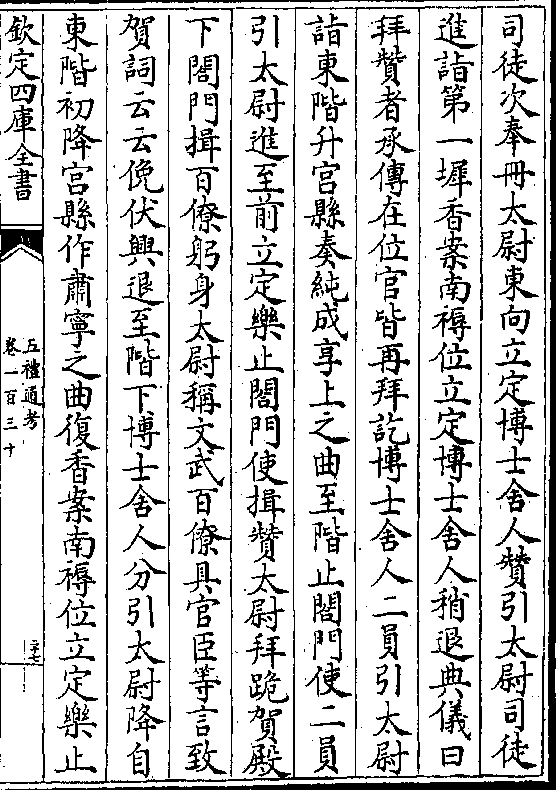 司徒次奉冊太尉東向立定博士舍人贊引太尉司徒
進詣第一墀香案南褥位立定博士舍人稍退典儀曰
拜贊者承傳在位官皆再拜訖博士舍人二員引太尉
詣東階升宮縣奏純成享上之曲至階止閤門使二員
引太尉進至前立定樂止閤門使揖贊太尉拜跪賀殿
下閤門揖百僚躬身太尉稱文武百僚具官臣等言致
賀詞云云俛伏興退至階下博士舍人分引太尉降自
東階初降宮縣作肅寧之曲復香案南褥位立定樂止
欽定四庫全書
五禮通考
卷一百三十
二十七